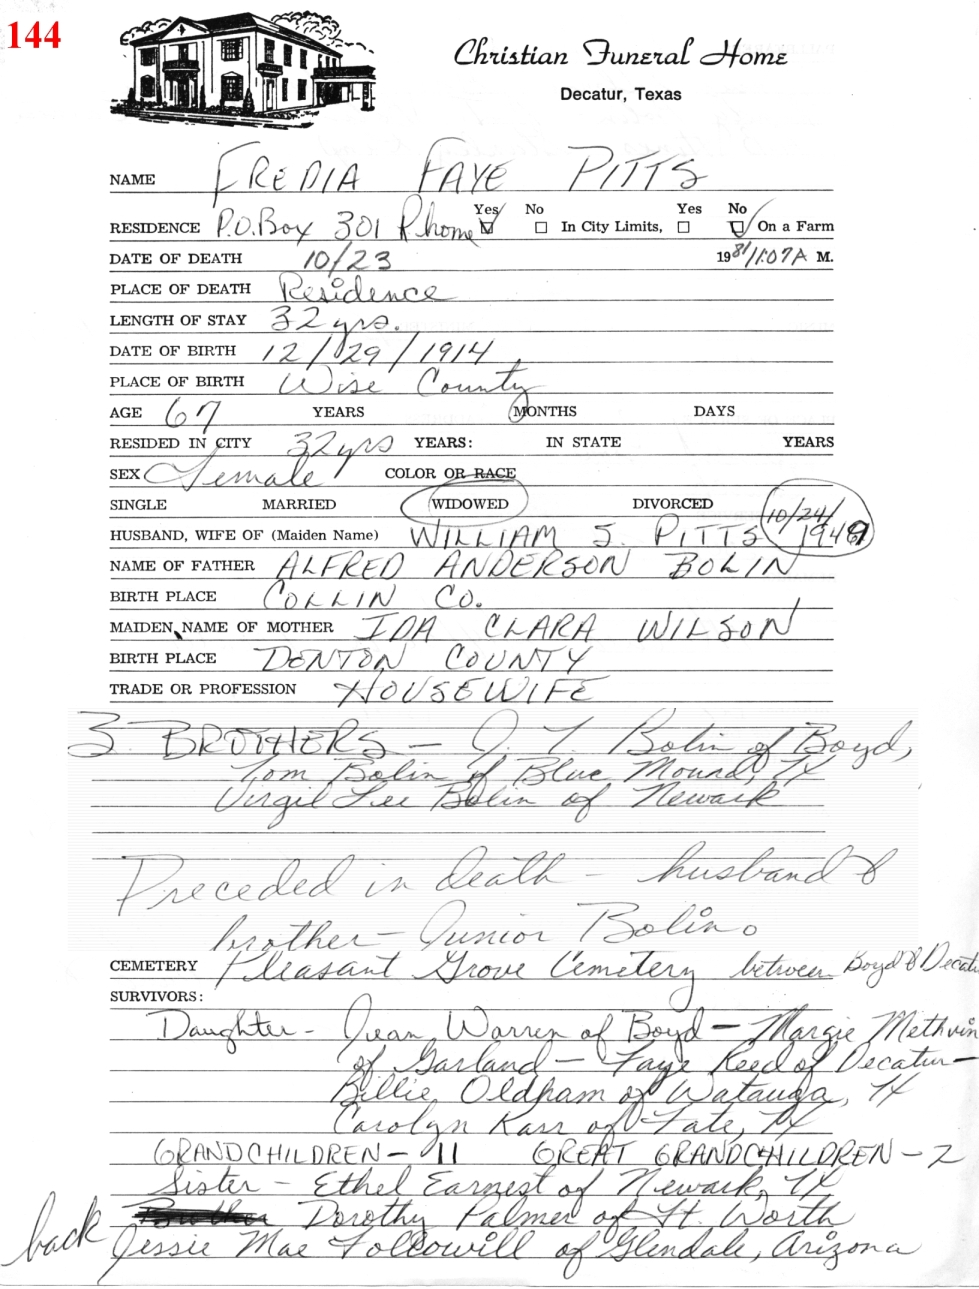 144
Christian Funeral Home
Decatur, Texas
NAME FREDIA FAYE PITTS
RESIDENCE P.O. Box 301 Rhome Yes No In City Limits, Yes No On a Farm
DATE OF DEATH 10/23 1981 11:07 A M.
PLACE OF DEATH Residence
LENGTH OF STAY 32 yrs.
DATE OF BIRTH 12/29/1914
PLACE OF BIRTH Wise County
AGE 67 YEARS MONTHS DAYS
RESIDED IN CITY 32 yrs YEARS: IN STATE YEARS
SEX Female COLOR OR RACE
SINGLE MARRIED WIDOWED DIVORCED 10/24/
HUSBAND, WIFE OF (Maiden Name) WILLIAM S. PITTS 1949
NAME OF FATHER ALFRED ANDERSON BOLIN
BIRTH PLACE COLLIN CO.
MAIDEN NAME OF MOTHER IDA CLARA WILSON
BIRTH PLACE DENTON COUNTY
TRADE OR PROFESSION HOUSEWIFE
3 BROTHERS - J. T. Bolin of Boyd,
Tom Bolin of Blue Mound, TX
Virgil Lee Bolin of Newark
Preceded in death - husband &
brother - Junior Bolin.
CEMETERY Pleasant Grove Cemetery between Boyd & Decatur
SURVIVORS:
Daughter - Jean Warren of Boyd - Margie Methvin
of Garland - Faye Reed of Decatur -
Billie Oldham of Watauga, TX
Carolyn Karr of Tate, TX
GRANDCHILDREN - 11 GREAT GRANDCHILDREN - 2
Sister - Ethel Earnest of Newark, TX
Dorothy Palmer of Ft. Worth
back Jessie Mae Followill of Glendale, Arizona